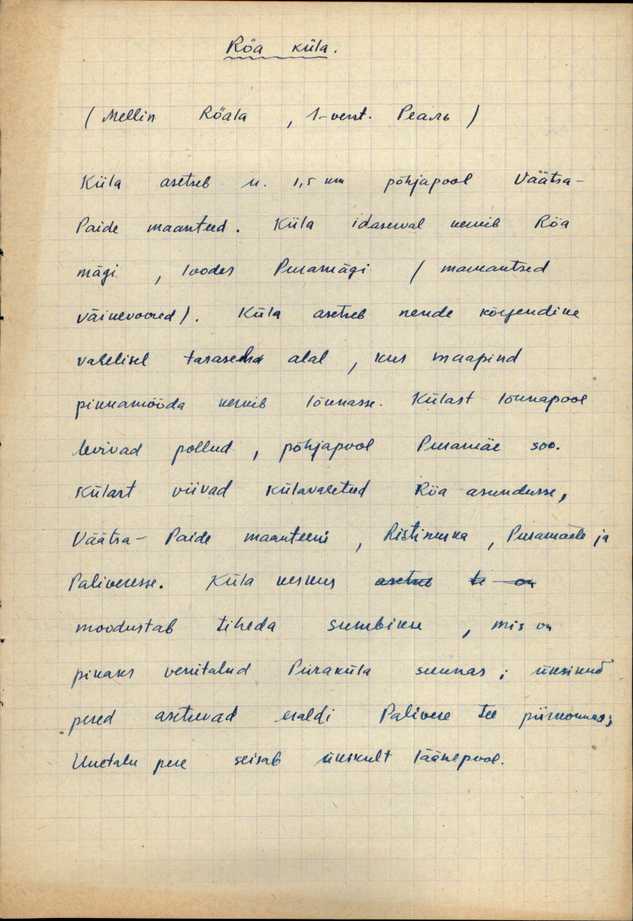 Röa küla.
(Mellin Röala, 1-verst. Реаль)
Küla asetseb u. 1,5 km põhjapool Väätsa-
Paide maanteed. Küla idaserval kerkib Röa
mägi, loodes Piiramägi (mõlemad
väikevoored). Küla asetseb nende kõrgendike
vahelisel tasasel alal, kus maapind
pikkamööda kerkib lõunasse. Külast lõunapool
levivad põllud, põhjapool Piiramäe soo.
Külast viivad külavahetud Röa asundusse,
Väätsa-Paide maanteeni, Ristinurka, Piiramäele ja
Paliveresse. Küla keskus asetseb
moodustab tiheda sumbküla, mis on
pikaks venitatud Piiraküla suunas; üksikud
pered asetsevad eraldi Palivere tee piirkonnas;
Uuetalu pere seisab üksikult läänepool.